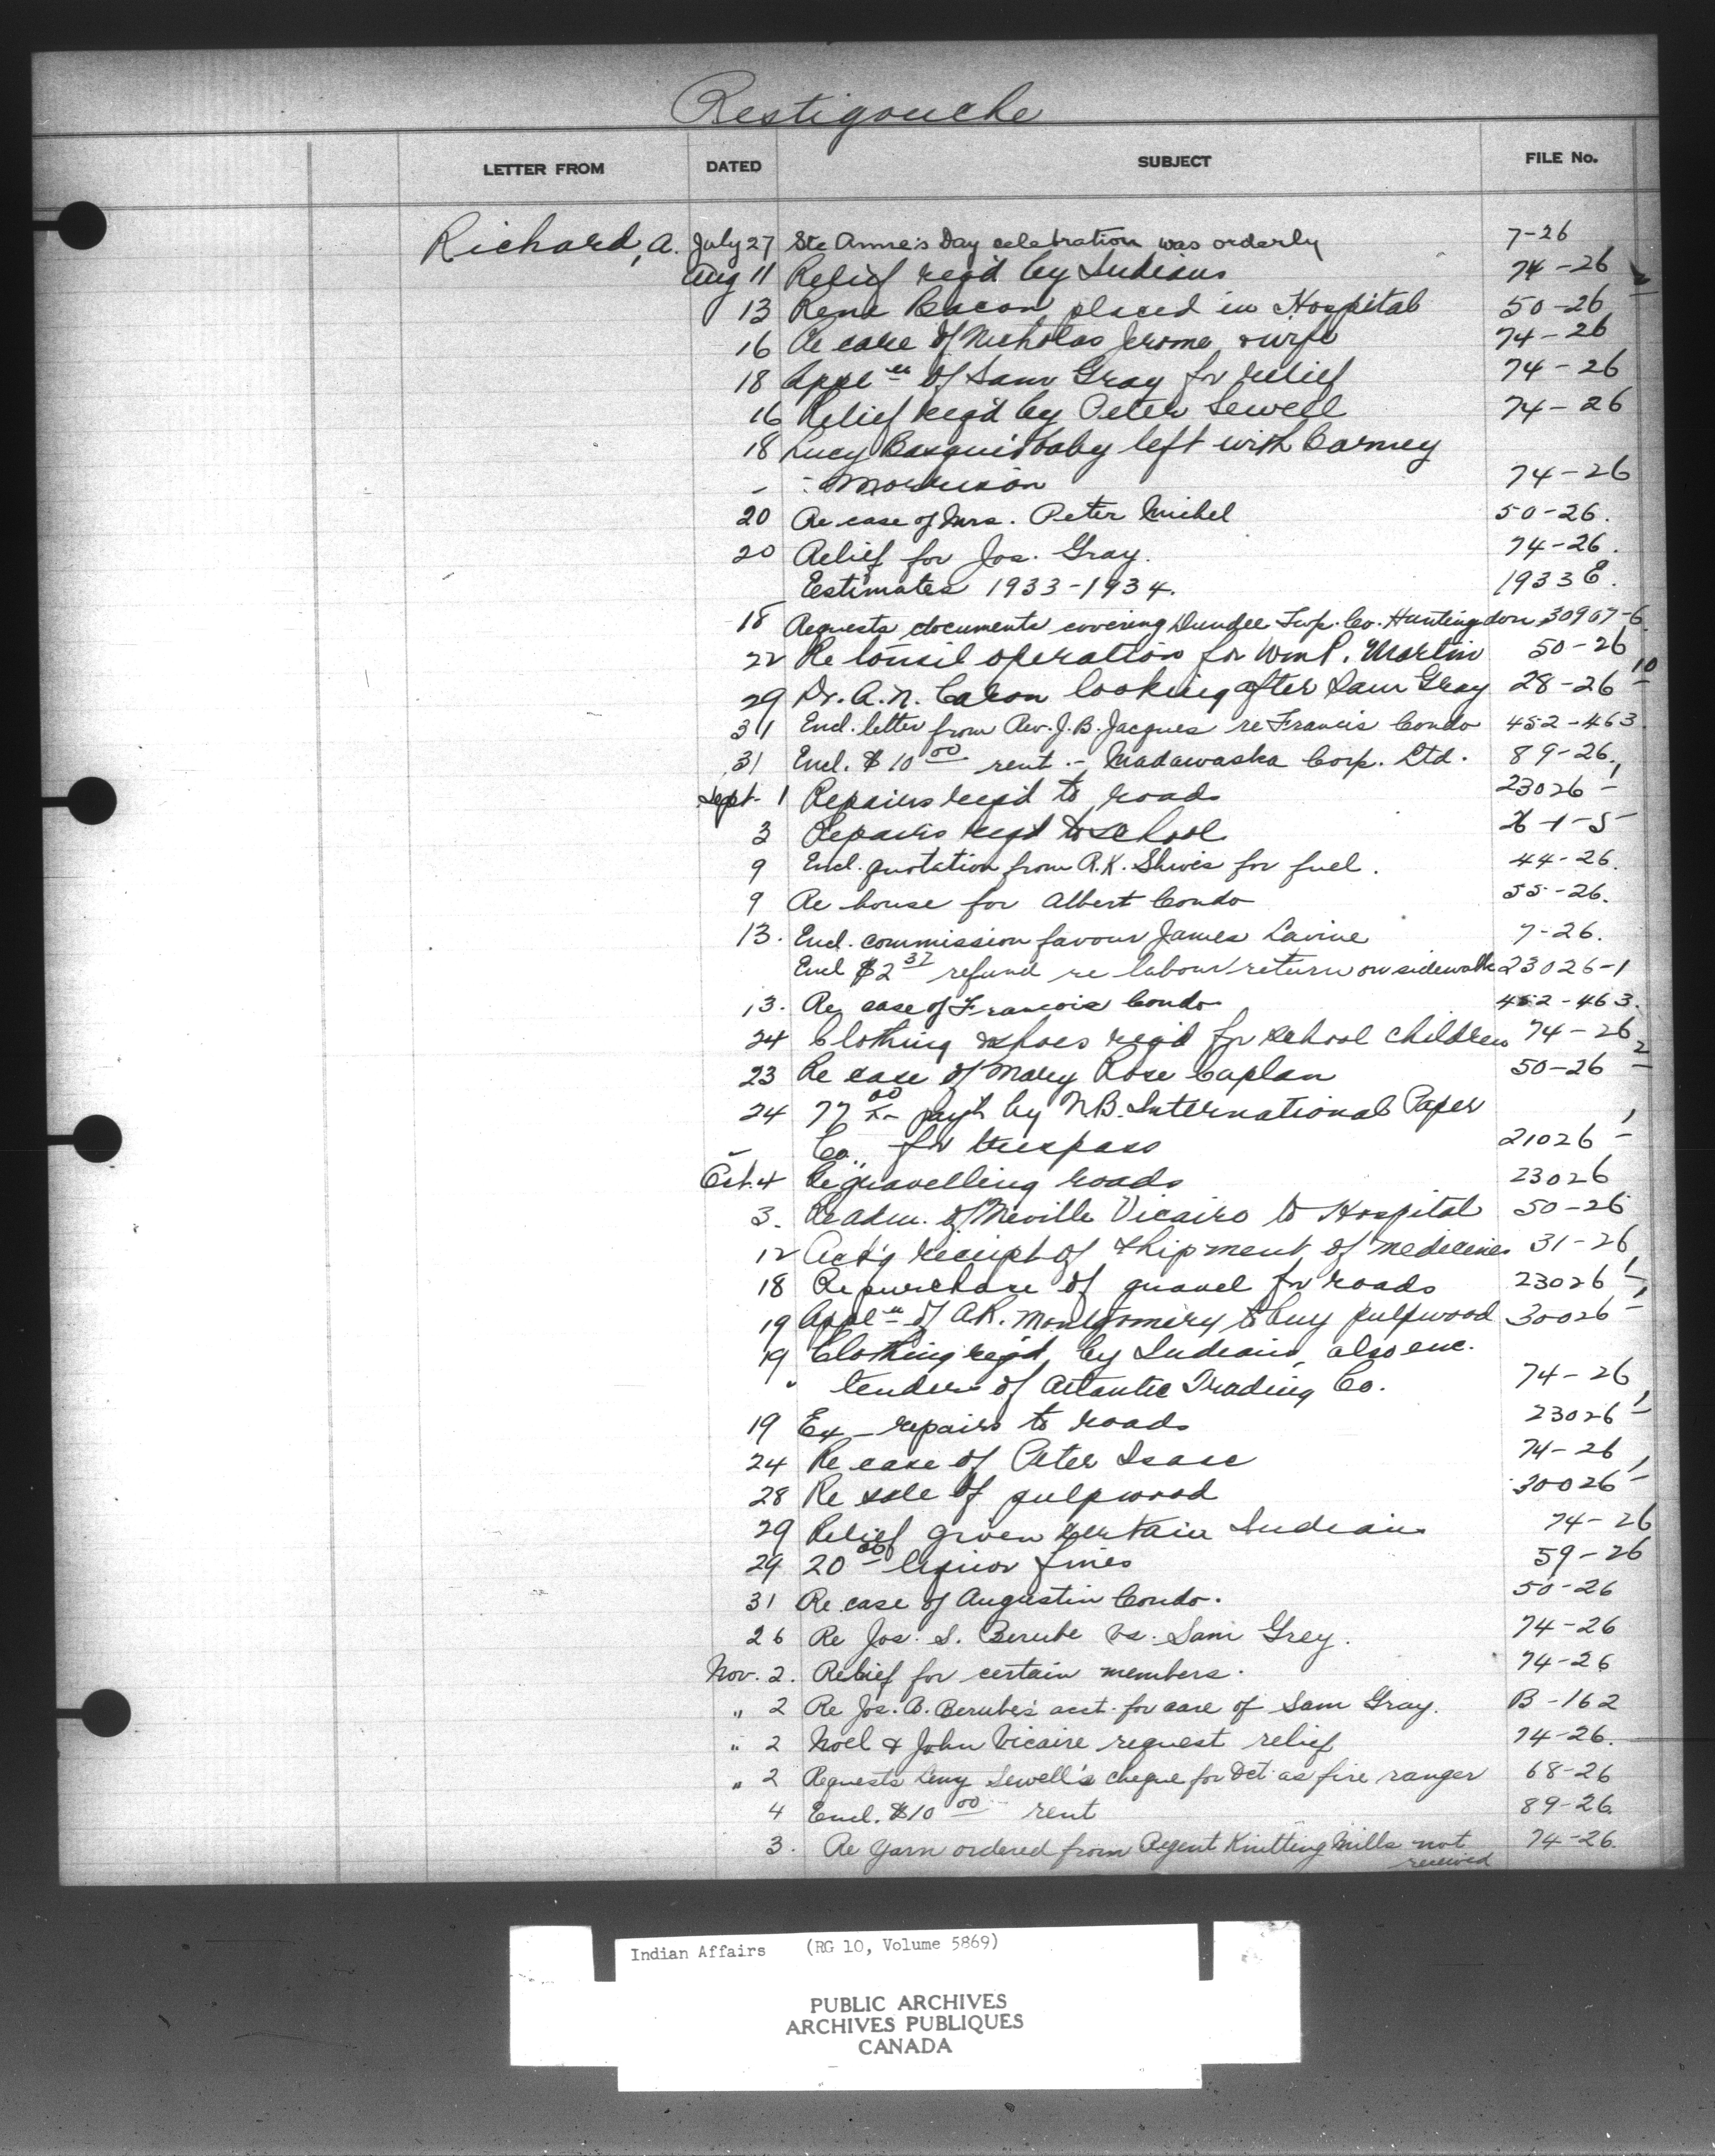 Restigouche
LETTER FROM DATED SUBJECT FILE No.
Richard, A. July 27 Ste Anne's Day celebration was orderly 7-26
Aug 11 Relief req'd by Indians 74-26 2
13 Rene Bacon placed in Hospital 50-26
16 Re case of Nicholas Jerome & wife 74-26
18 Appl'n of Sam Gray for relief 74-26
16 Relief req'd by Peter Sewell 74-26
18 Lucy Basque's baby left with Barney
- Morrison 74-26
20 Re case of Mrs. Peter Michel 50-26.
20 Relief for Jos. Gray. 74-26.
Estimates 1933-1934. 1933 E.
18 Requests documents covering Dundee Twp. Co. Huntingdon 30907-6
22 Re tonsil operation for Wm P. Martin 50-26
29 Dr. A.N. Caron looking after Sam Gray 28-26 10
31 Encl. letter from Rev. J.B. Jacques re Francis Condo 452-463.
31 Encl. $10 00 rent - Madawaska Corp. Ltd. 89-26.
Sept. 1 Repairs req'd to roads 23026-1
3 Repairs req'd to school 26-1-5
9 Encl. quotation from A.K. Shives for fuel. 44-26.
9 Re house for Albert Condo 55-26.
13. Encl. commission favour James Lavine 7-26.
Encl $2 37 refund re labour return on sidewalk 23026-1
13. Re case of Francois Condo 452-463.
24 Clothing & shoes req'd for school children 74-26
23 Re case of Mary Rose Caplan 50-26 2
24 77 00 pay't by N.B. International Paper
- Co., for trespass 21026-1
Oct. 4 Re gravelling roads 23026
3. Re adm. of Neville Vicairo to Hospital 50-26
12 Ack'g receipt of shipment of medicines 31-26
18 Re purchase of gravel for roads 23026-1
19 Appl'n of A.R. Montgomery to buy pulpwood 30026-1
19 Clothing req'd by Indians, also enc.
" tender of Atlantic Trading Co. 74-26
19 Ex repairs to roads 23026-1
24 Re case of Peter Isaac 74-26
28 Re sale of pulpwood 30026-1
29 Relief given certain Indians 74-26
29 20 00 liquor fines 59-26
31 Re case of Augustin Condo. 50-26
26 Re Jos. S. Berube vs. Sam Grey. 74-26
Nov. 2. Relief for certain members. 74-26
" 2 Re Jos. B. Berube's acct. for care of Sam Gray. B-162
" 2 Noel & John Vicaire request relief 74-26.
" 2 Requests Sewell's cheque for Oct as fire ranger 68-26
4 Encl. $10 00 rent 89-26
3. Re yarn ordered from Regent Knitting Mills not received 74-26
Indian Affairs (RG 10, Volume 5869)
PUBLIC ARCHIVES
ARCHIVES PUBLIQUES
CANADA